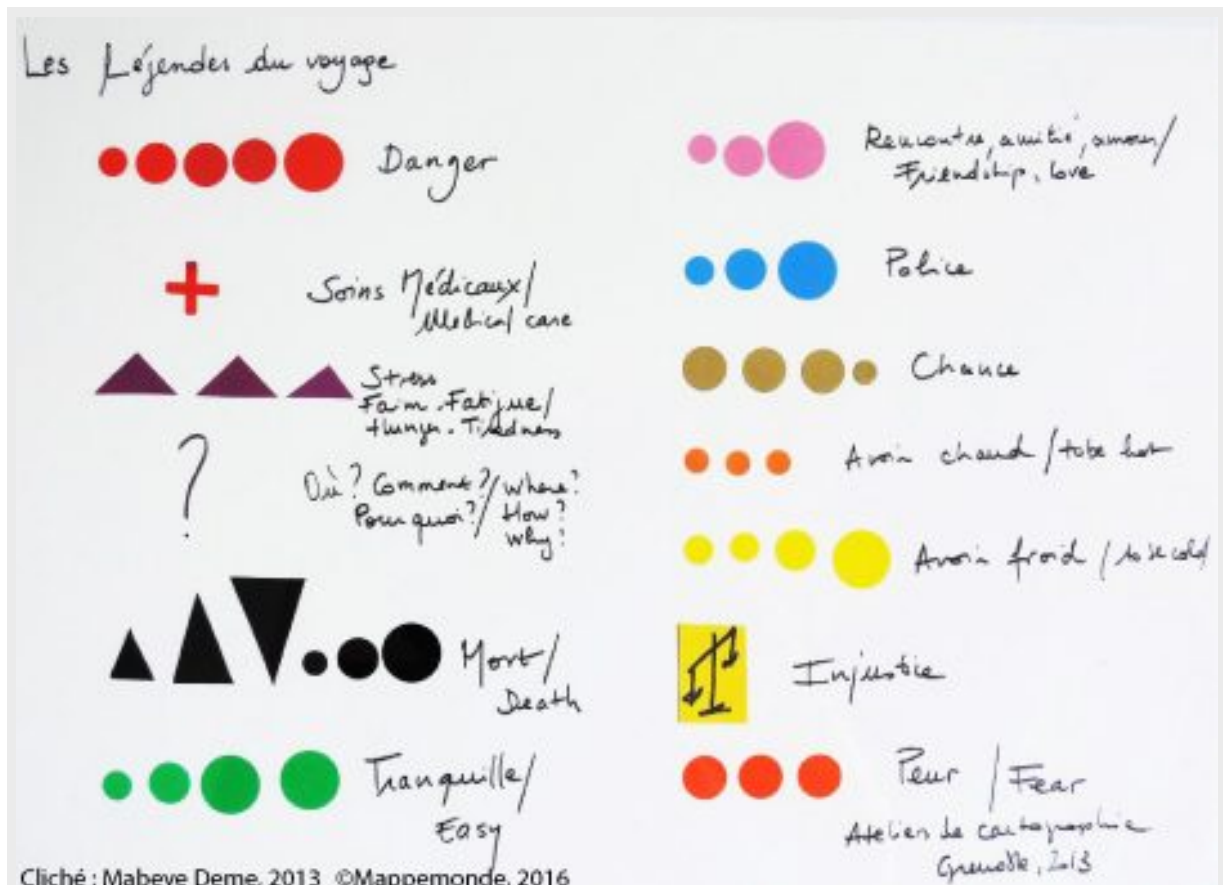 Les Léjendes du voyage
Danger
Soins Médicaux/
Medical care
Stress
Faim . Fatigue/
Hunger . Tiredness
?
Où? Comment?/ Where?
Pourquoi?/ How?
Why?
Mort/
Death
Tranquille/
Easy
Rencontre, amitié, amour/
Friendship, love
Police
Chance
Avoir chaud / to be hot
Avoir froid / to be cold
Injustice
Peur / Fear
Atelier de cartographie
Grenoble, 2013
Cliché : Mabeye Deme, 2013 ©Mappemonde, 2016